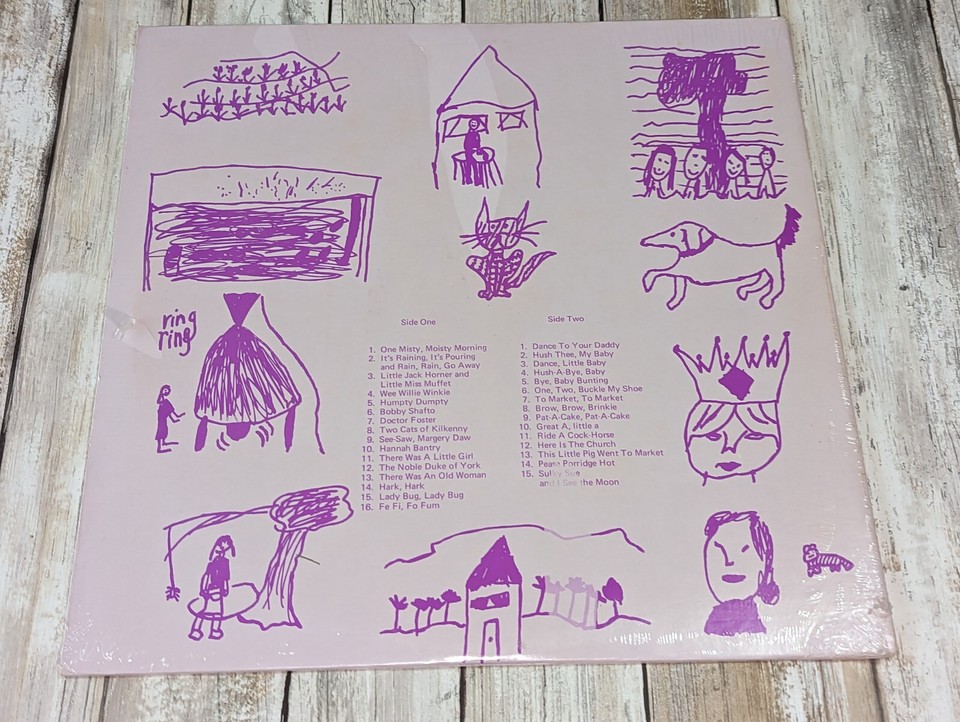 ring
ring
Side One
1. One Misty, Moisty Morning
2. It's Raining, It's Pouring
and Rain, Rain, Go Away
3. Little Jack Horner and
Little Miss Muffet
4. Wee Willie Winkie
5. Humpty Dumpty
6. Bobby Shafto
7. Doctor Foster
8. Two Cats of Kilkenny
9. See-Saw, Margery Daw
10. Hannah Bantry
11. There Was A Little Girl
12. The Noble Duke of York
13. There Was An Old Woman
14. Hark, Hark
15. Lady Bug, Lady Bug
16. Fe Fi, Fo Fum
Side Two
1. Dance To Your Daddy
2. Hush Thee, My Baby
3. Dance, Little Baby
4. Hush-A-Bye, Baby
5. Bye, Baby Bunting
6. One, Two, Buckle My Shoe
7. To Market, To Market
8. Brow, Brow, Brinkie
9. Pat-A-Cake, Pat-A-Cake
10. Great A, little a
11. Ride A Cock-Horse
12. Here Is The Church
13. This Little Pig Went To Market
14. Pease Porridge Hot
15. Sulky Sue
and I See the Moon